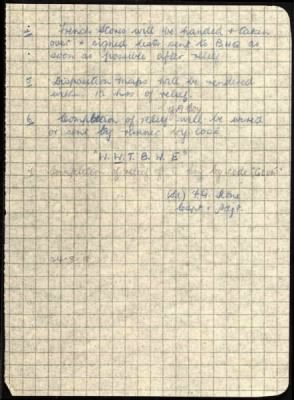 Trench Stores will be handed & taken
over & signed lists sent to BHQ as
soon as possible after relief
Disposition maps will be rendered
within 12 hrs of relief
6 Completion of relief will be wired
or sent by runner by code
"W. W. T. B. W. E"
Completion of relief by code
Capt & Adjt